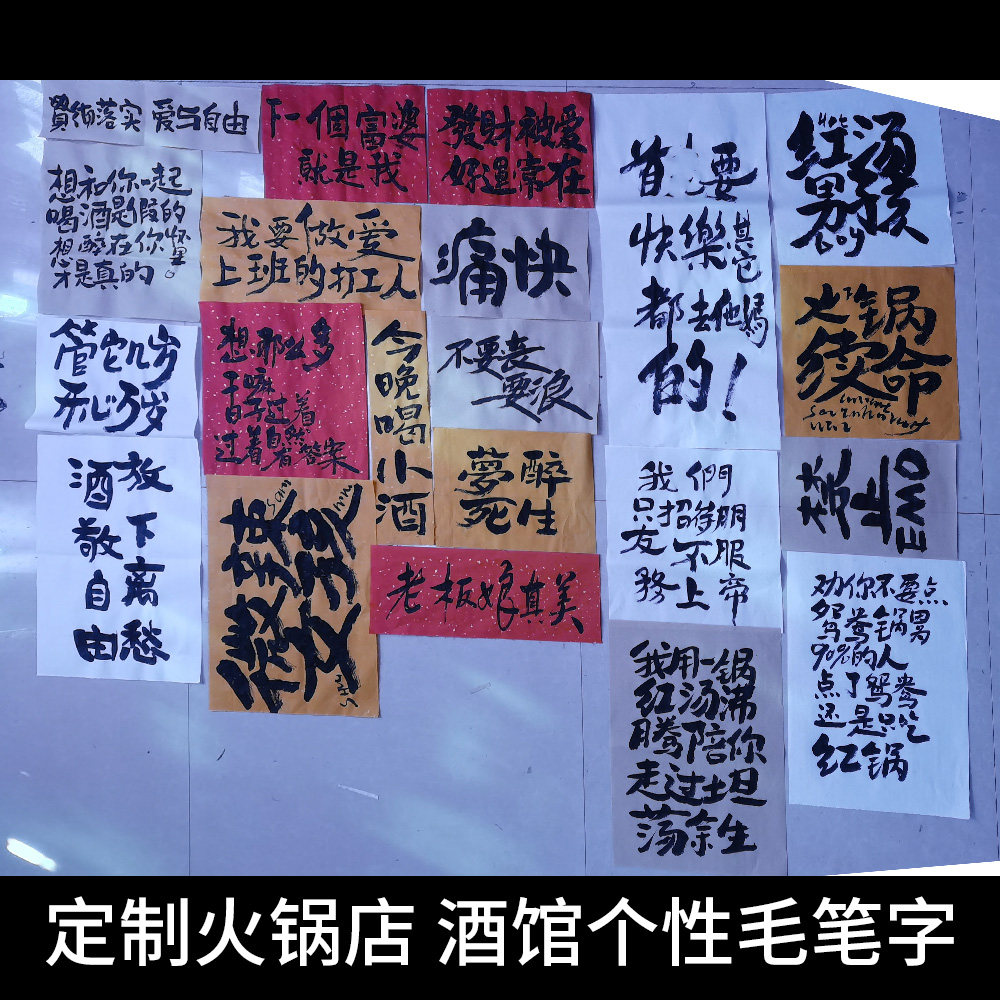 貫彻落实 爱与自由
想和你一起
喝酒是假的
想醉在你怀里。
才是真的
管它几岁
开心万岁
放下离愁
酒敬自由
下一個富婆
就是我
發財被愛
好運常在
我要做爱
上班的打工人
痛快
想那么多
干嘛
日子过着
过着自然
有答案
今晚喝小酒
不要丧
要浪
醉生
夢死
微辣
变态
老板娘真美
首先要
快樂其它
都去他媽
的!
我們
只招待朋
友不服
務上帝
我用一锅
红汤沸
腾陪你
走过土坦
荡余生
Hot
红汤
男孩
Boy
火锅
续命
禁止
EMO
劝你不要点
鸳鸯锅因
90%的人
点了鸳鸯
还是只吃
红锅
定制火锅店 酒馆个性毛笔字